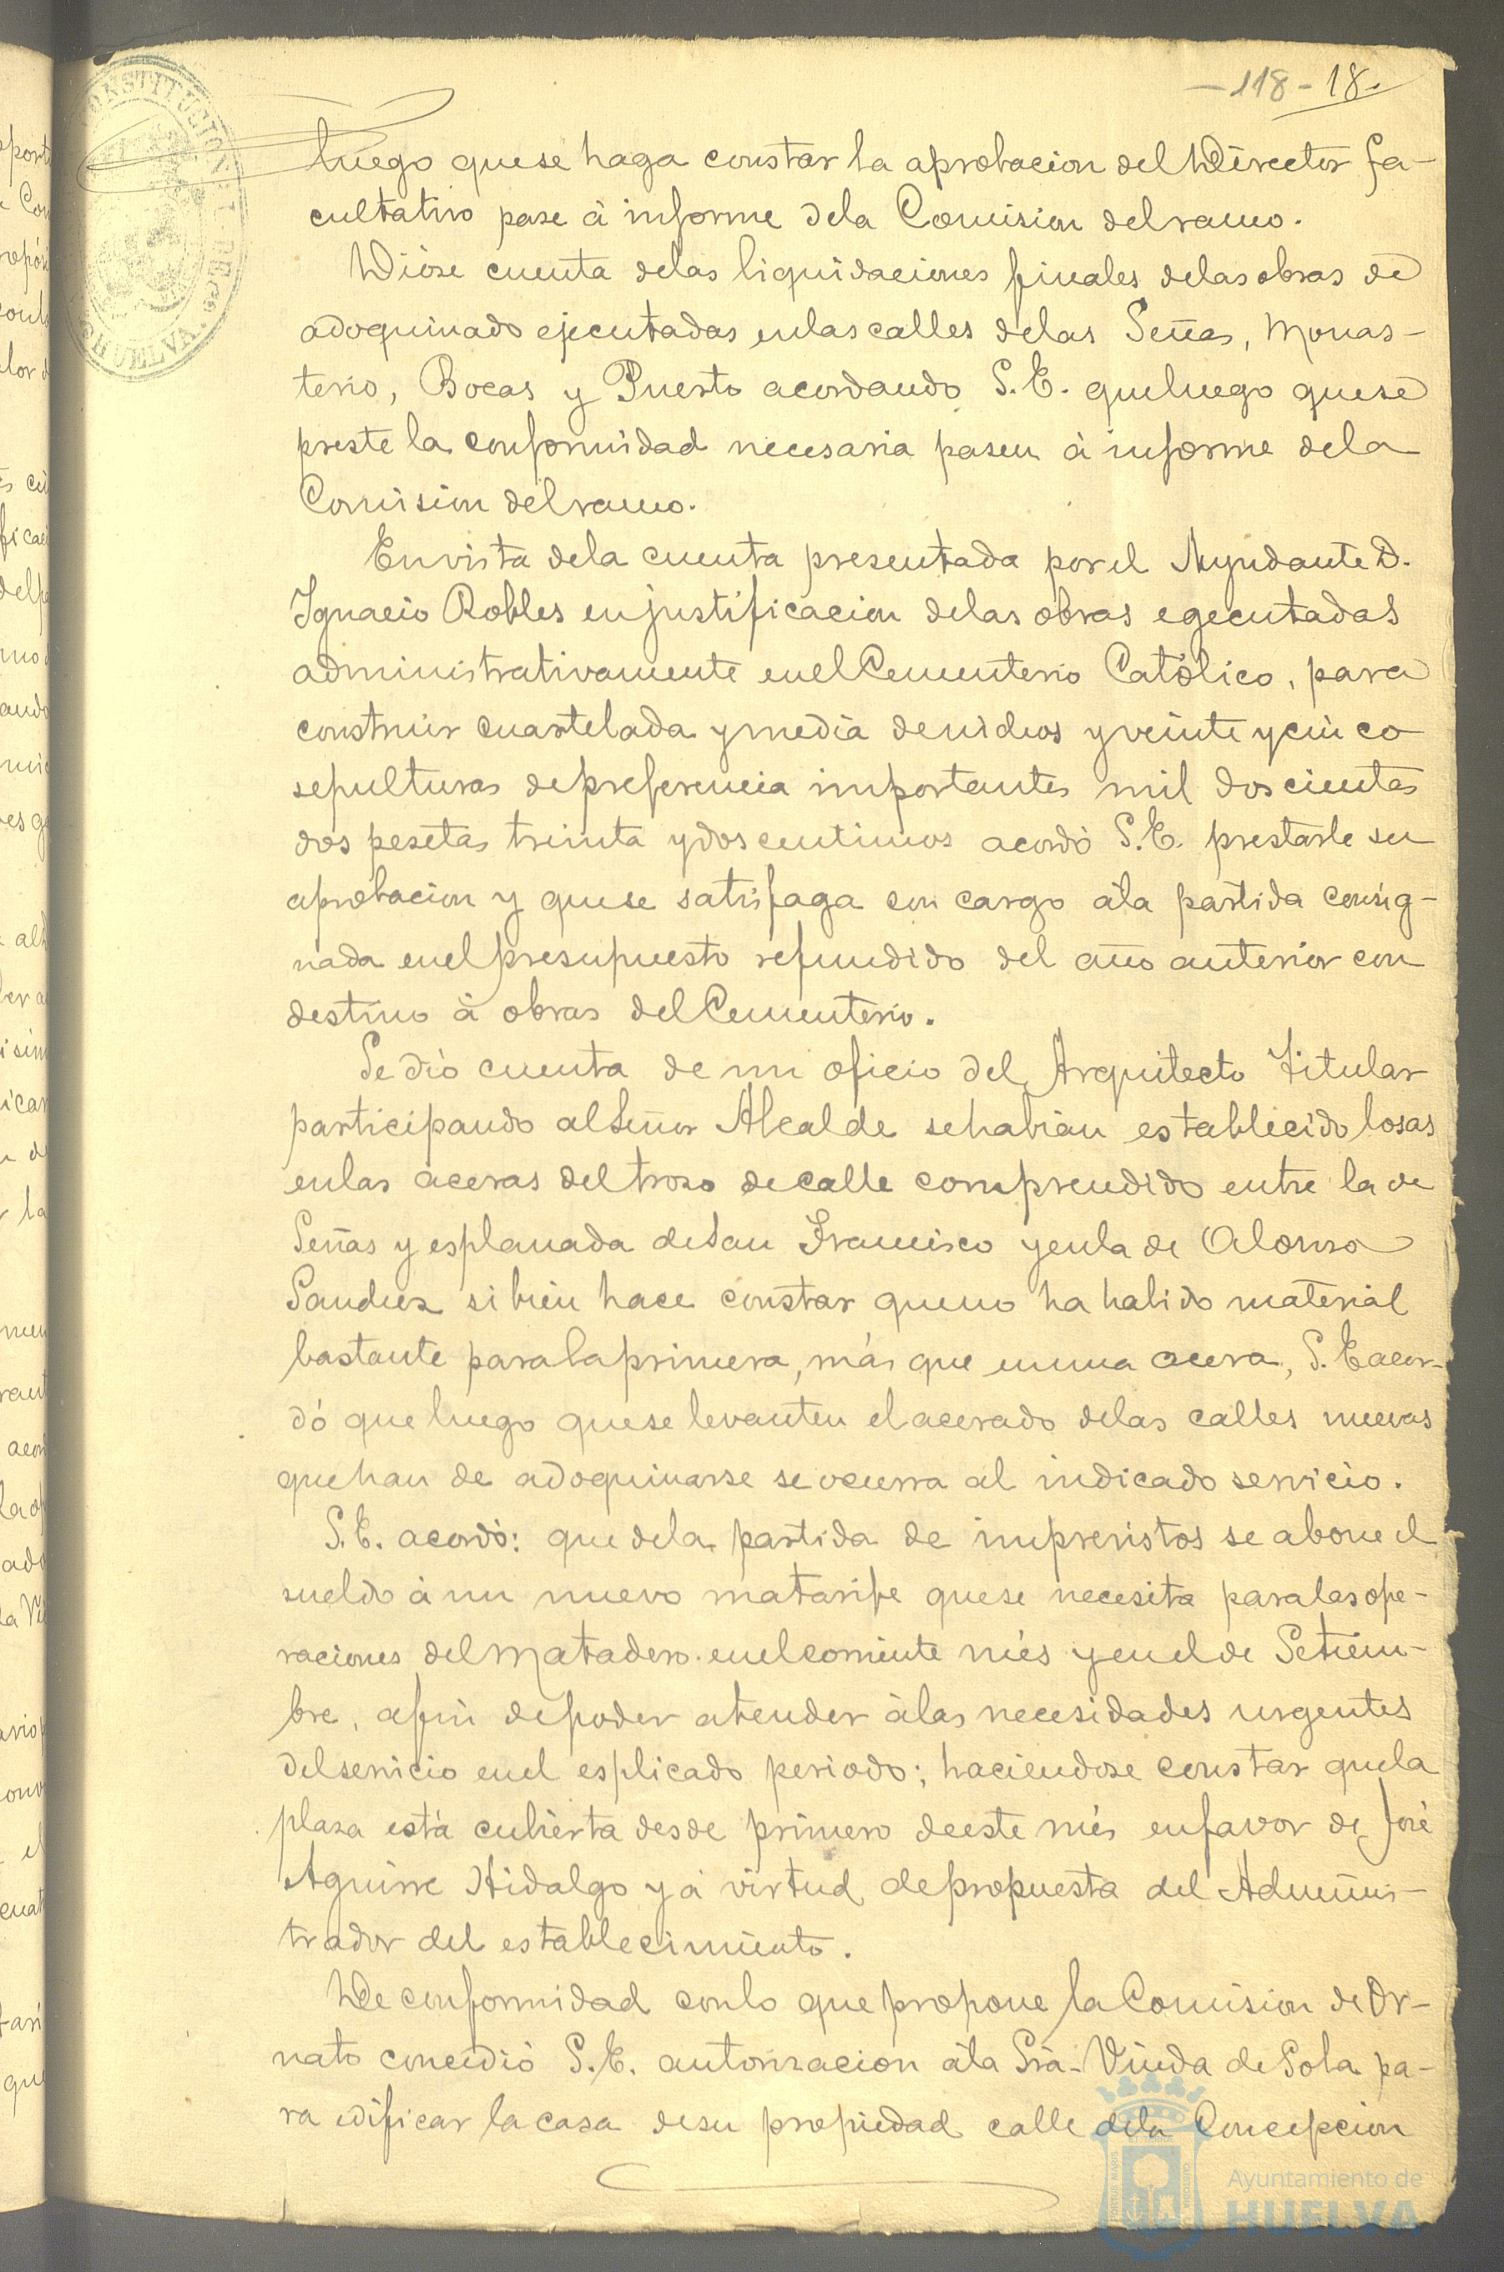 -118- 18.
luego que se haga constar la aprobacion del Director fa-
cultativo pase á informe de la Comision del ramo.
Dióse cuenta de las liquidaciones finales de las obras de
adoquinado ejecutadas en las calles de las Señas, Monas-
terio, Bocas y Puerto acordando S. E. que luego que se
preste la conformidad necesaria pasen á informe de la
Comision del ramo.
En vista de la cuenta presentada por el Ayudante D.
Ignacio Robles en justificacion de las obras egecutadas
administrativamente en el Cementerio Católico, para
construir cuartelada y media de nichos y veinte y cinco
sepulturas de preferencia importantes mil doscientas
dos pesetas treinta y dos centimos acordó S. E. prestarle su
aprobacion y que se satisfaga con cargo á la partida consig-
nada en el presupuesto refundido del año anterior con
destino á obras del Cementerio.
Se dió cuenta de un oficio del Arquitecto Titular
participando al Señor Alcalde se habian establecido losas
en las aceras del troso de calle comprendido entre la de
Señas y esplanada de San Francisco y en la de Alonso
Sanchez si bien hace constar que no ha habido material
bastante para la primera, más que en una acera, S. E acor-
dó que luego que se levanten el acerado de las calles nuevas
que han de adoquinarse se ocurra al indicado servicio.
S. E. acordó: que de la partida de imprevistos se abone el
sueldo á un nuevo matarife que se necesita para las ope-
raciones del Matadero en el corriente més y en el de Setiem-
bre, afin de poder atender á las necesidades urgentes
del servicio en el esplicado periodo; haciendose constar que la
plaza está cubierta desde primero de este més en favor de José
Aguirre Hidalgo y á virtud de propuesta del Adminis-
trador del establecimiento.
De conformidad con lo que propone la Comision de Or-
nato concedió S. E. autorizacion á la Sra. Viuda de Sola pa-
ra edificar la casa de su propiedad calle de la Concepcion
CONSTITUCIONAL DE
HUELVA.
Ayuntamiento de
HUELVA